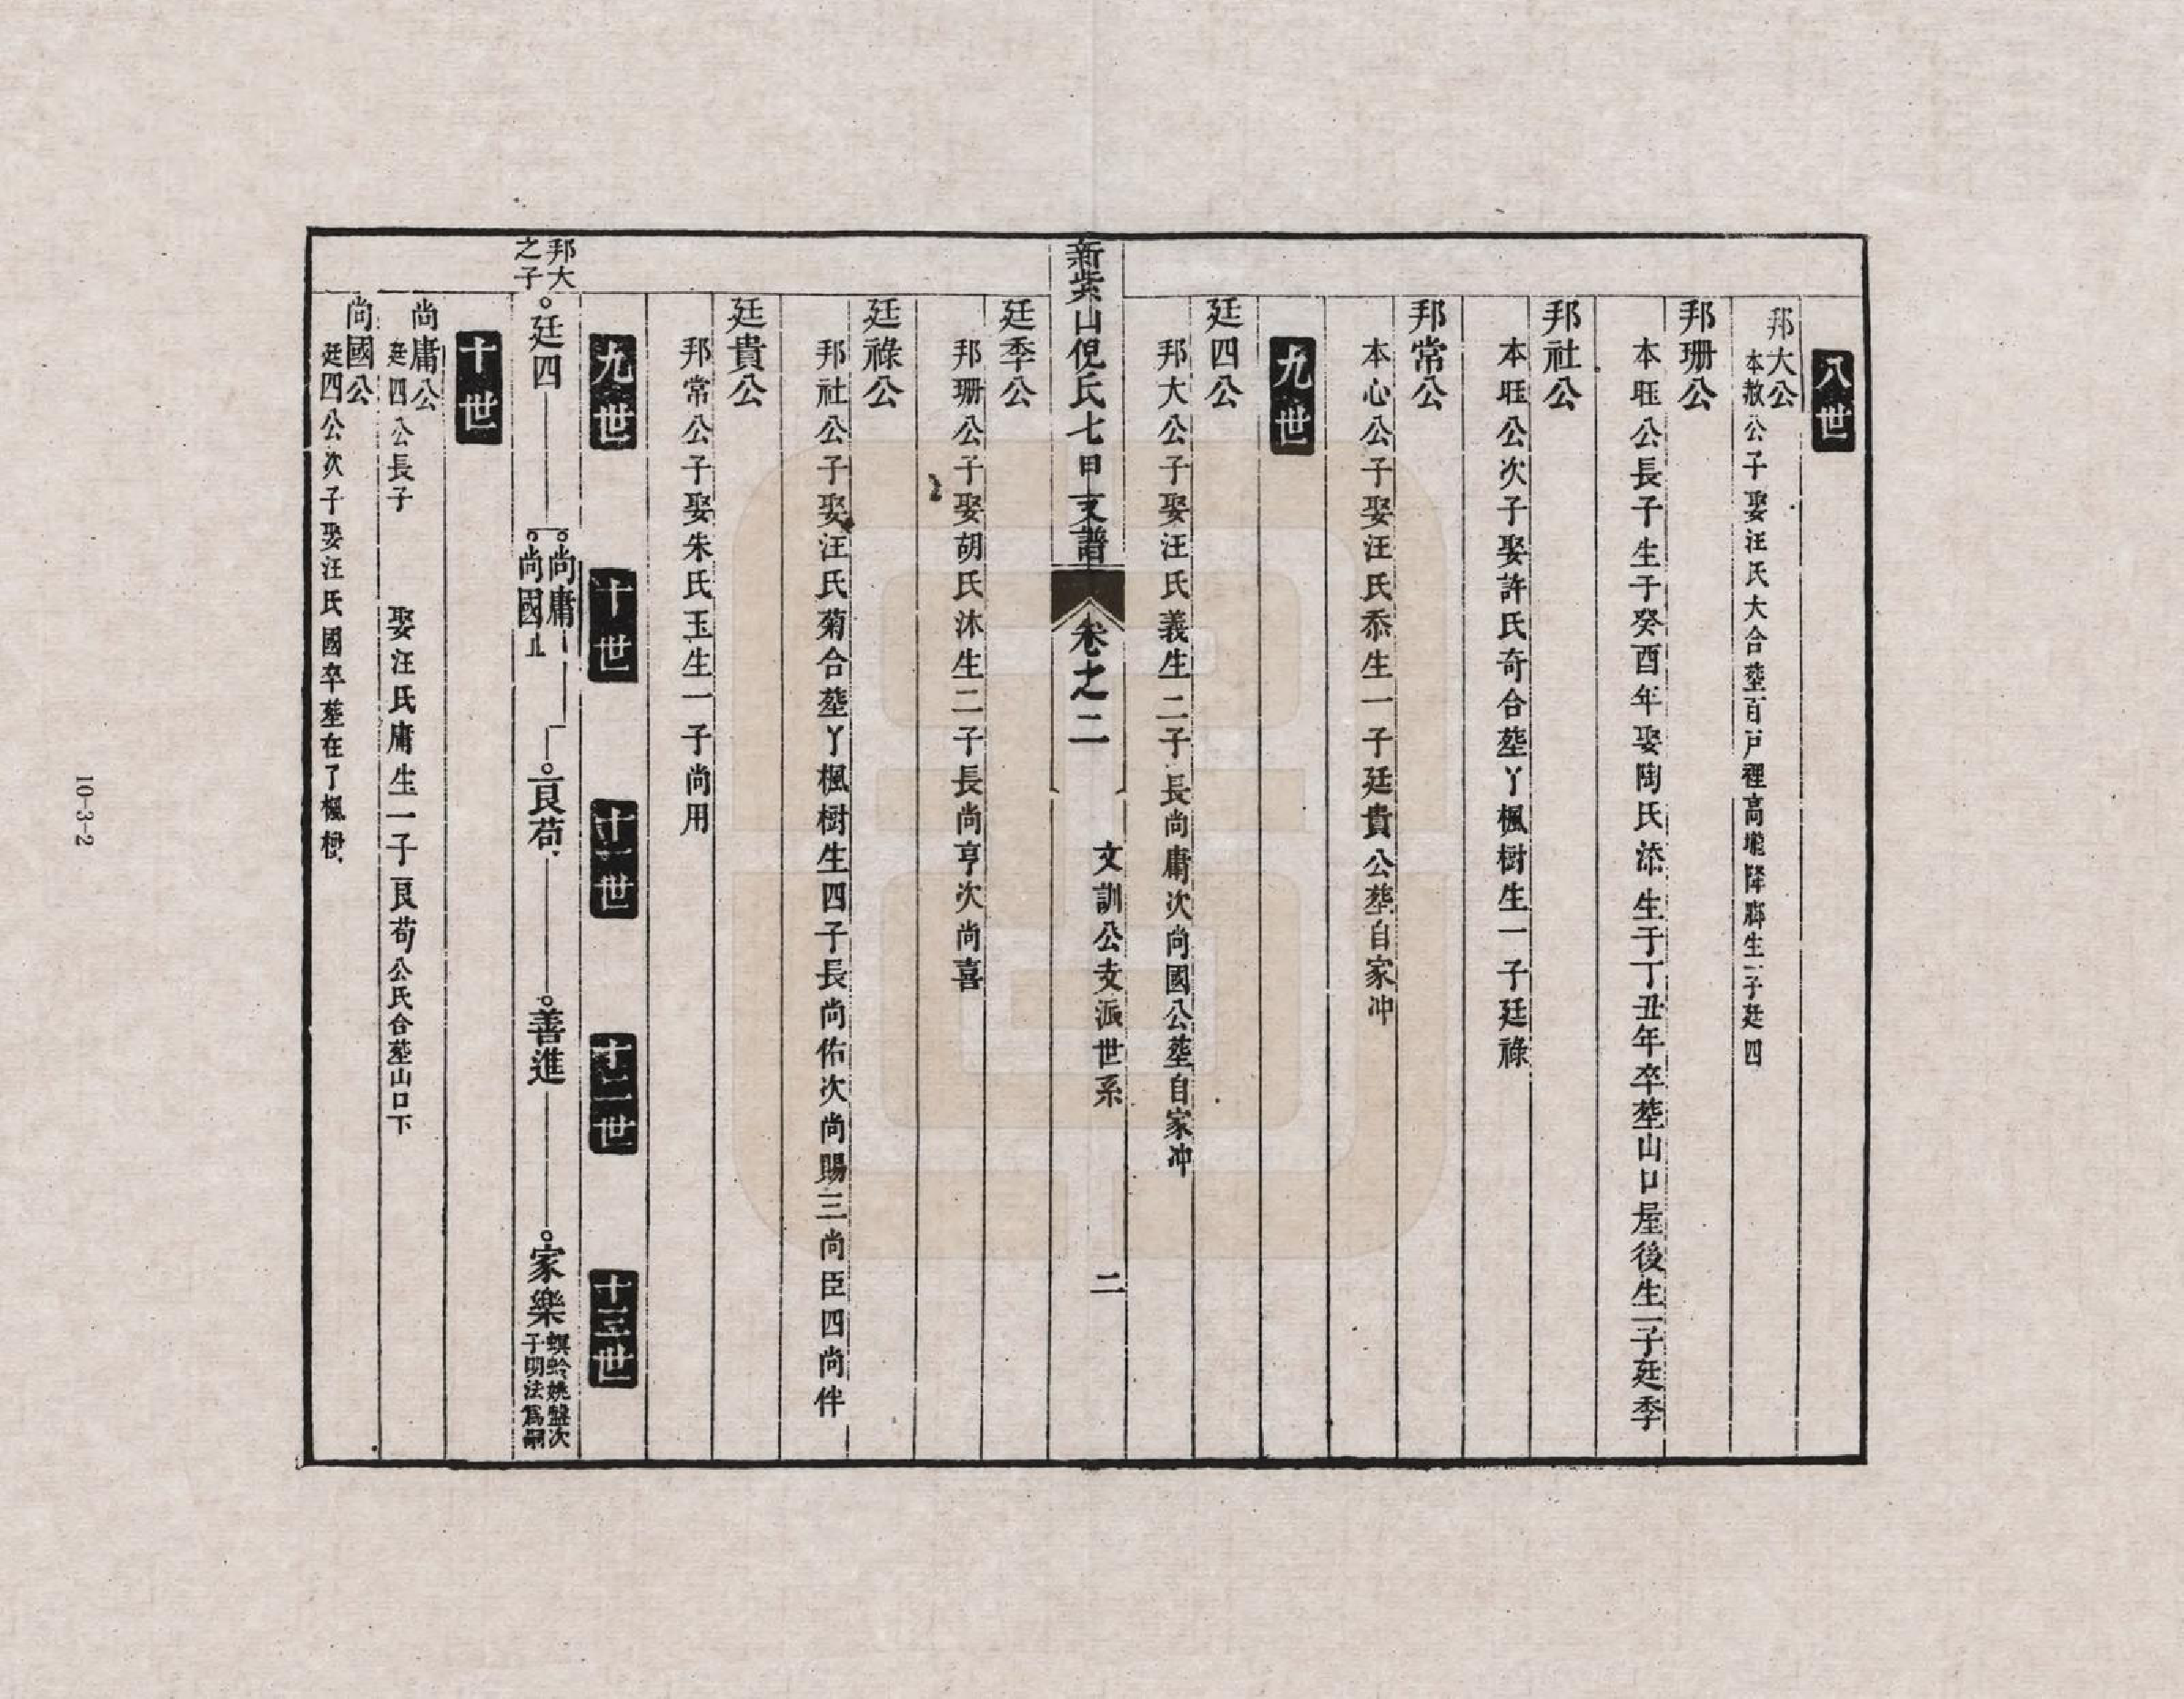 八世
邦大公
本敖公子娶汪氏大合塟百戸裡高壠降脚生一子廷四
邦珊公
本旺公長子生于癸酉年娶陶氏添生于丁丑年卒塟山口屋後生一子廷季
邦社公
本旺公次子娶許氏奇合塟丫楓樹生一子廷祿
邦常公
本心公子娶汪氏忝生一子廷貴公塟自家冲
九世
廷四公
邦大公子娶汪氏義生二子長尚庸次尚國公塟自家冲
新紫山倪氏七甲支譜
卷之二
文訓公支派世系
二
廷季公
邦珊公子娶胡氏沐生二子長尚亨次尚喜
廷祿公
邦社公子娶汪氏菊合塟丫楓樹生四子長尚佑次尚賜三尚臣四尚伴
廷貴公
邦常公子娶朱氏玉生一子尚用
九世 十世 十一世 十二世 十三世
邦大之子
廷四
尚庸
尚國止
艮苟
善進
家樂
螟蛉姚盤次
子明法爲嗣
十世
尚庸公
廷四公長子 娶汪氏庸生一子艮苟公氏合塟山口下
尚國公
廷四公次子娶汪氏國卒塟在了楓樹
10-3-2